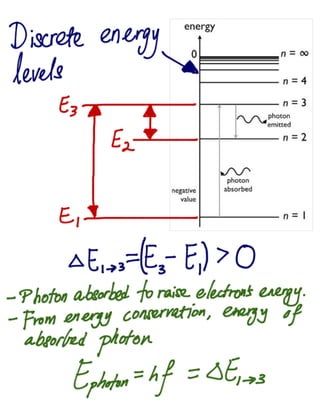 Discrete energy
levels
energy
0
n = ∞
n = 4
n = 3
photon
emitted
n = 2
photon
absorbed
negative
value
n = 1
E₃
E₂
E₁
ΔE₁→₃=(E₃-E₁)>0
-Photon absorbed to raise electron's energy.
-From energy conservation, energy of
absorbed photon
Ephoton=hf=ΔE₁→₃